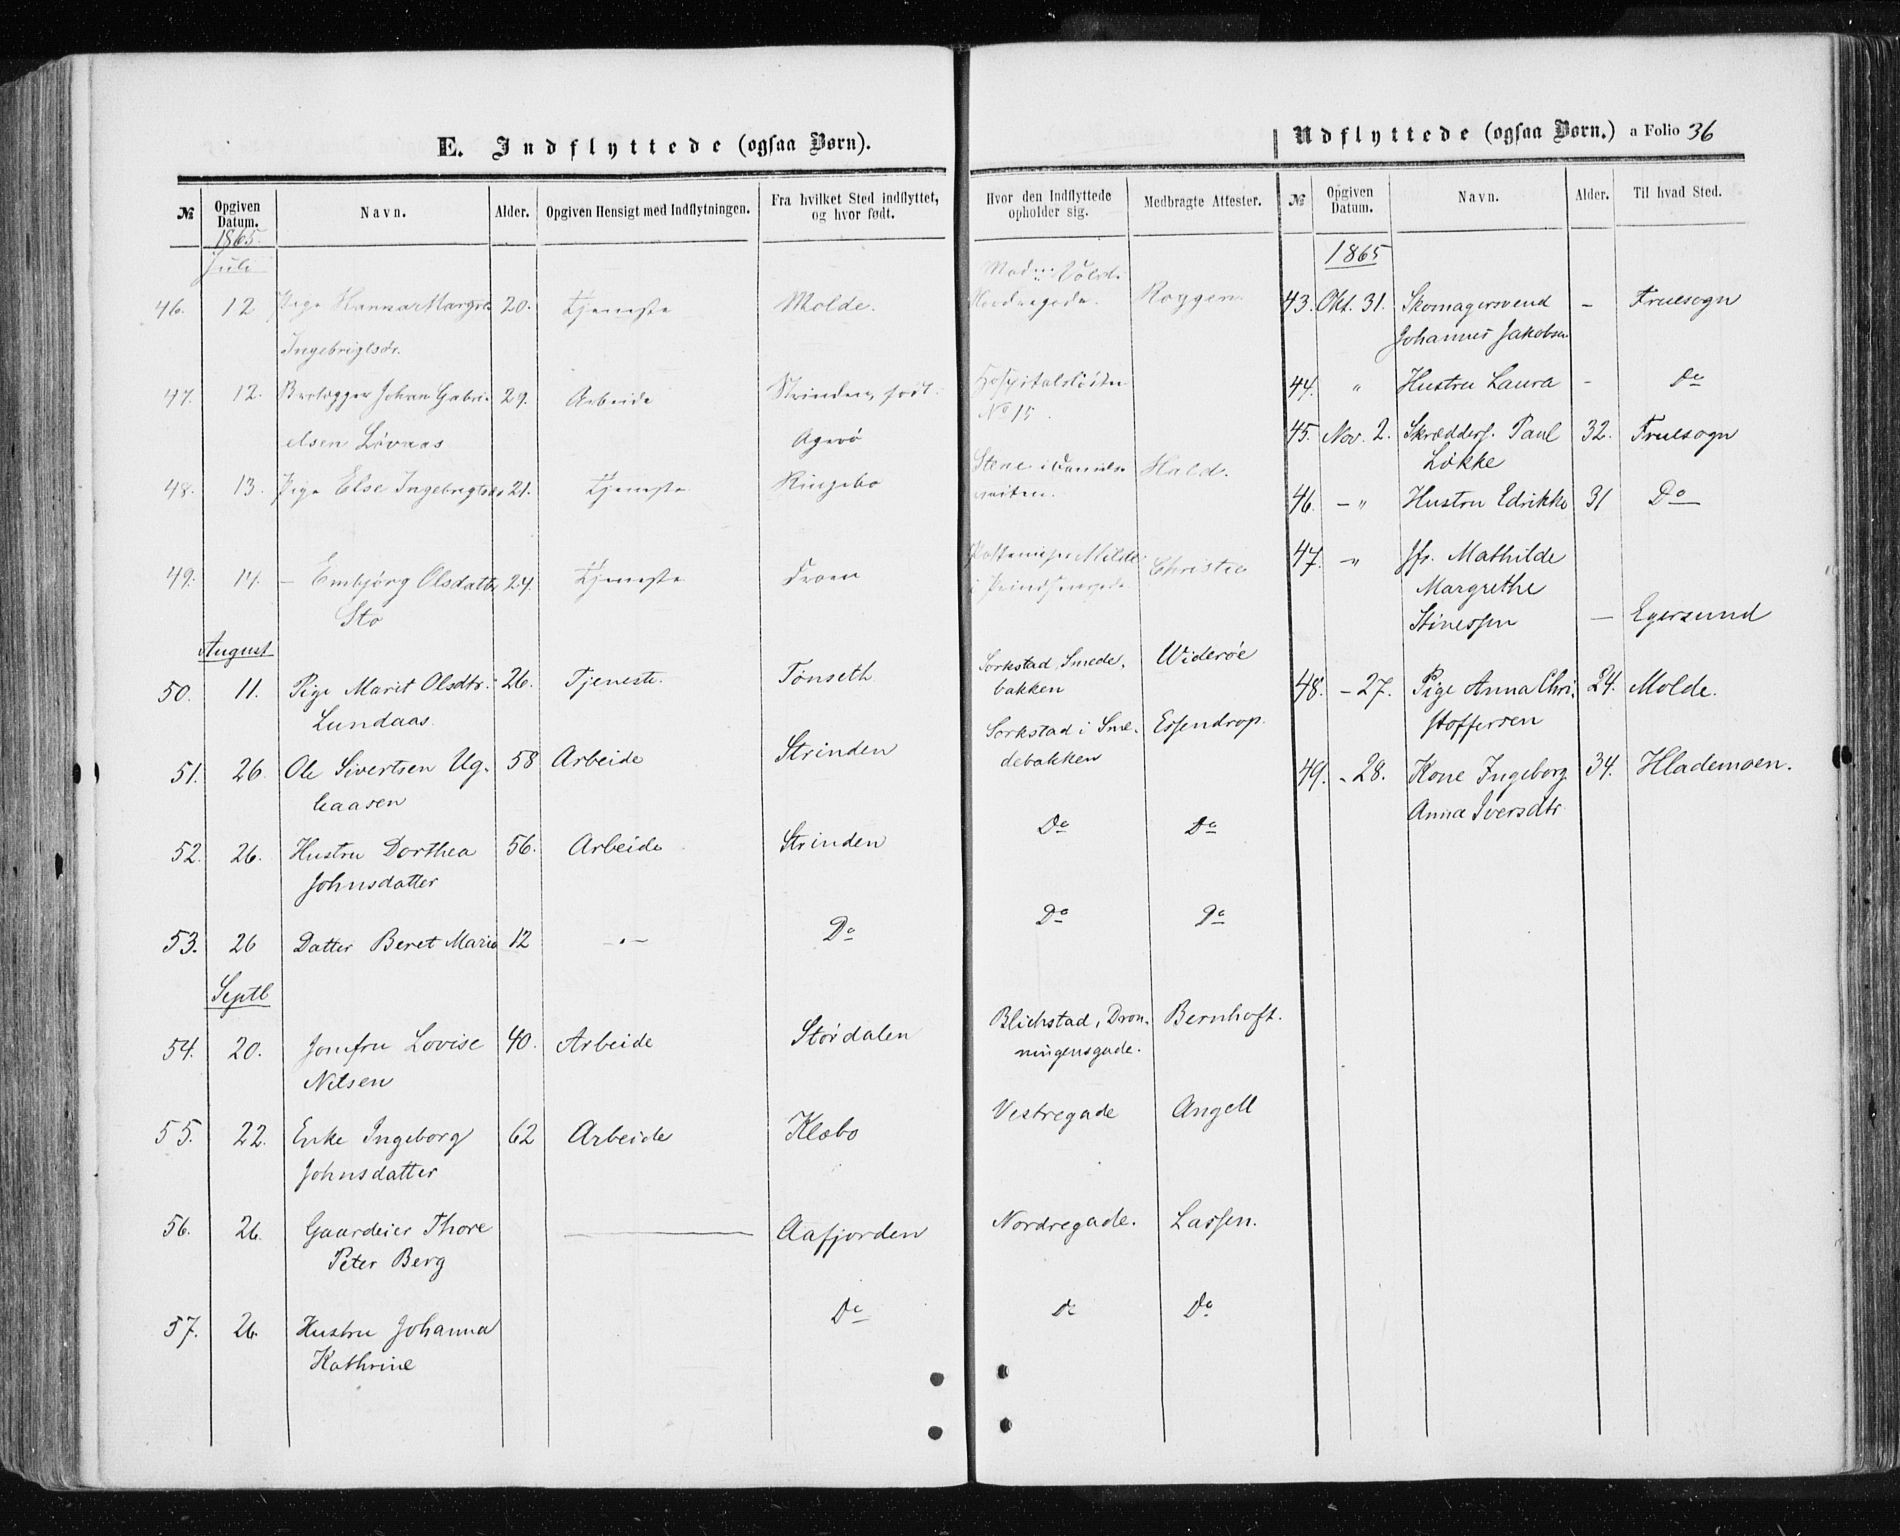 E. Indflyttede (ogsaa Børn).
№ Opgiven Datum. Navn. Alder. Opgiven Hensigt med Indflytningen. Fra hvilket Sted indflyttet, og hvor født.
1865.
Juli
46. 12 Pige Hanna Margre 20. Tjeneste Molde.
Ingebrigtsdr.
47. 12. Brolægger Johan Gabri- 29. Arbeide Strinden, født
elsen Løvaas Agerø
48. 13. Pige Else Ingebrigtsdr 21. Tjeneste Ringebo
49. 14. — Embjørg Olsdatter 24. Tjeneste
Sto
August
50. 11. Pige Marit Olsdtr. 26. Tjeneste. Tønseth
Lundaas.
51. 26. Ole Sivertsen Ug- 58 Arbeide Strinden
laasen
52. 26. Hustru Dorthea 56. Arbeide Strinden
Johnsdatter
53. 26 Datter Beret Marie 12 —"— Do
Septb
54. 20. Jomfru Lovise 40. Arbeide Størdalen
Nilsen
55. 22. Enke Ingeborg 62 Arbeide Klæbo
Johnsdatter
56. 26. Gaardeier Thore — Aafjorden
Peter Berg
57. 26. Hustru Johanna Do
Kathrine
Udflyttede (ogsaa Børn.) a Folio 36
Hvor den Indflyttede opholder sig. Medbragte Attester.
Nordregade. Roggen
Hospitalsløkken
No 15.
Stene i Hald.
veiten.
Christie
i Prindsensgade
Sorkstad, Smede- Widerøe
bakken
Sorkstad i Sme- Essendrop.
debakken
Do Do
Do Do
Blichstad, Dron- Bernhoft.
ningensgade.
Vestregade Angell
Nordregade. Lassen.
Do Do
№ Opgiven Datum. Navn. Alder. Til hvad Sted.
1865
43. Okt. 31. Skomagersvend — Fruesogn
Johannes Jakobsen
44. " Hustru Laura - Do
45. Nov. 2. Skrædders. Paul 32. Fruesogn
Løkke
46. — " Hustru Edrikke 31 Do
47. — " Jfr. Mathilde
Margrethe
Stinessen — Egersund
48. - 27. Pige Anna Chri- 24. Molde.
stoffersen
49. - 28. Kone Ingeborg 34. Hlademoen.
Anna Iversdtr.